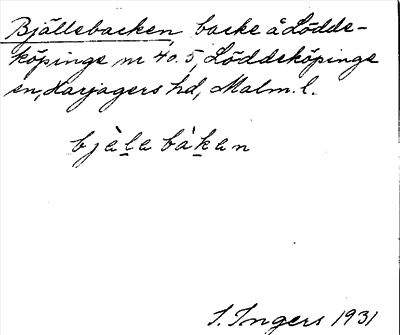 Bjällebacken, backe å Lödde-
köpinge nr 40.5, Löddeköpinge
sn, Harjagers hd, Malm. l.
bjälabákan
I. Ingers 1931